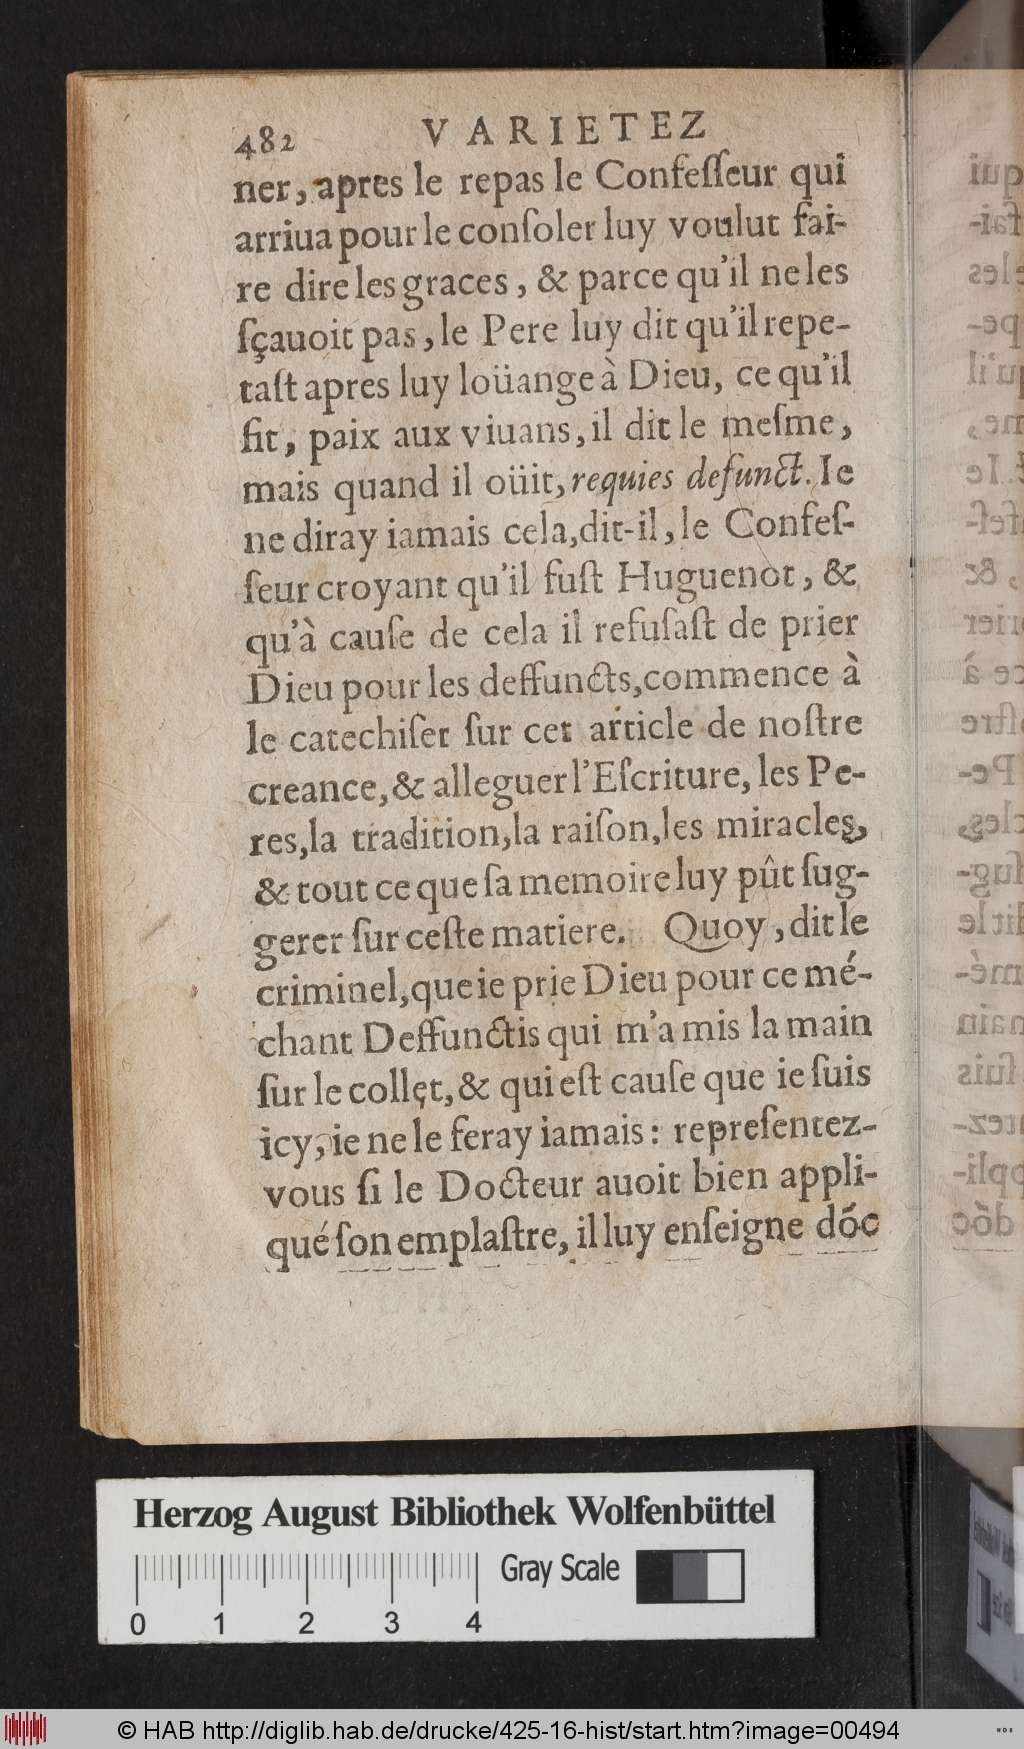 482 VARIETEZ
ner, apres le repas le Confeſſeur qui
arriua pour le conſoler luy voulut fai-
re dire les graces, & parce qu'il ne les
ſçauoit pas, le Pere luy dit qu'il repe-
taſt apres luy loüange à Dieu, ce qu'il
fit, paix aux viuans, il dit le meſme,
mais quand il oüit, requies defunct. Ie
ne diray iamais cela, dit-il, le Confeſ-
ſeur croyant qu'il fuſt Huguenot, &
qu'à cauſe de cela il refuſaſt de prier
Dieu pour les deffuncts, commence à
le catechiſer ſur cet article de noſtre
creance, & alleguer l'Eſcriture, les Pe-
res, la tradition, la raiſon, les miracles,
& tout ce que ſa memoire luy pût ſug-
gerer ſur ceſte matiere. Quoy, dit le
criminel, que ie prie Dieu pour ce mé-
chant Deffunctis qui m'a mis la main
ſur le collet, & qui eſt cauſe que ie ſuis
icy, ie ne le feray iamais : repreſentez-
vous ſi le Docteur auoit bien appli-
qué ſon emplaſtre, il luy enſeigne dóc
Herzog August Bibliothek Wolfenbüttel
Gray Scale
0 1 2 3 4
© HAB http://diglib.hab.de/drucke/425-16-hist/start.htm?image=00494